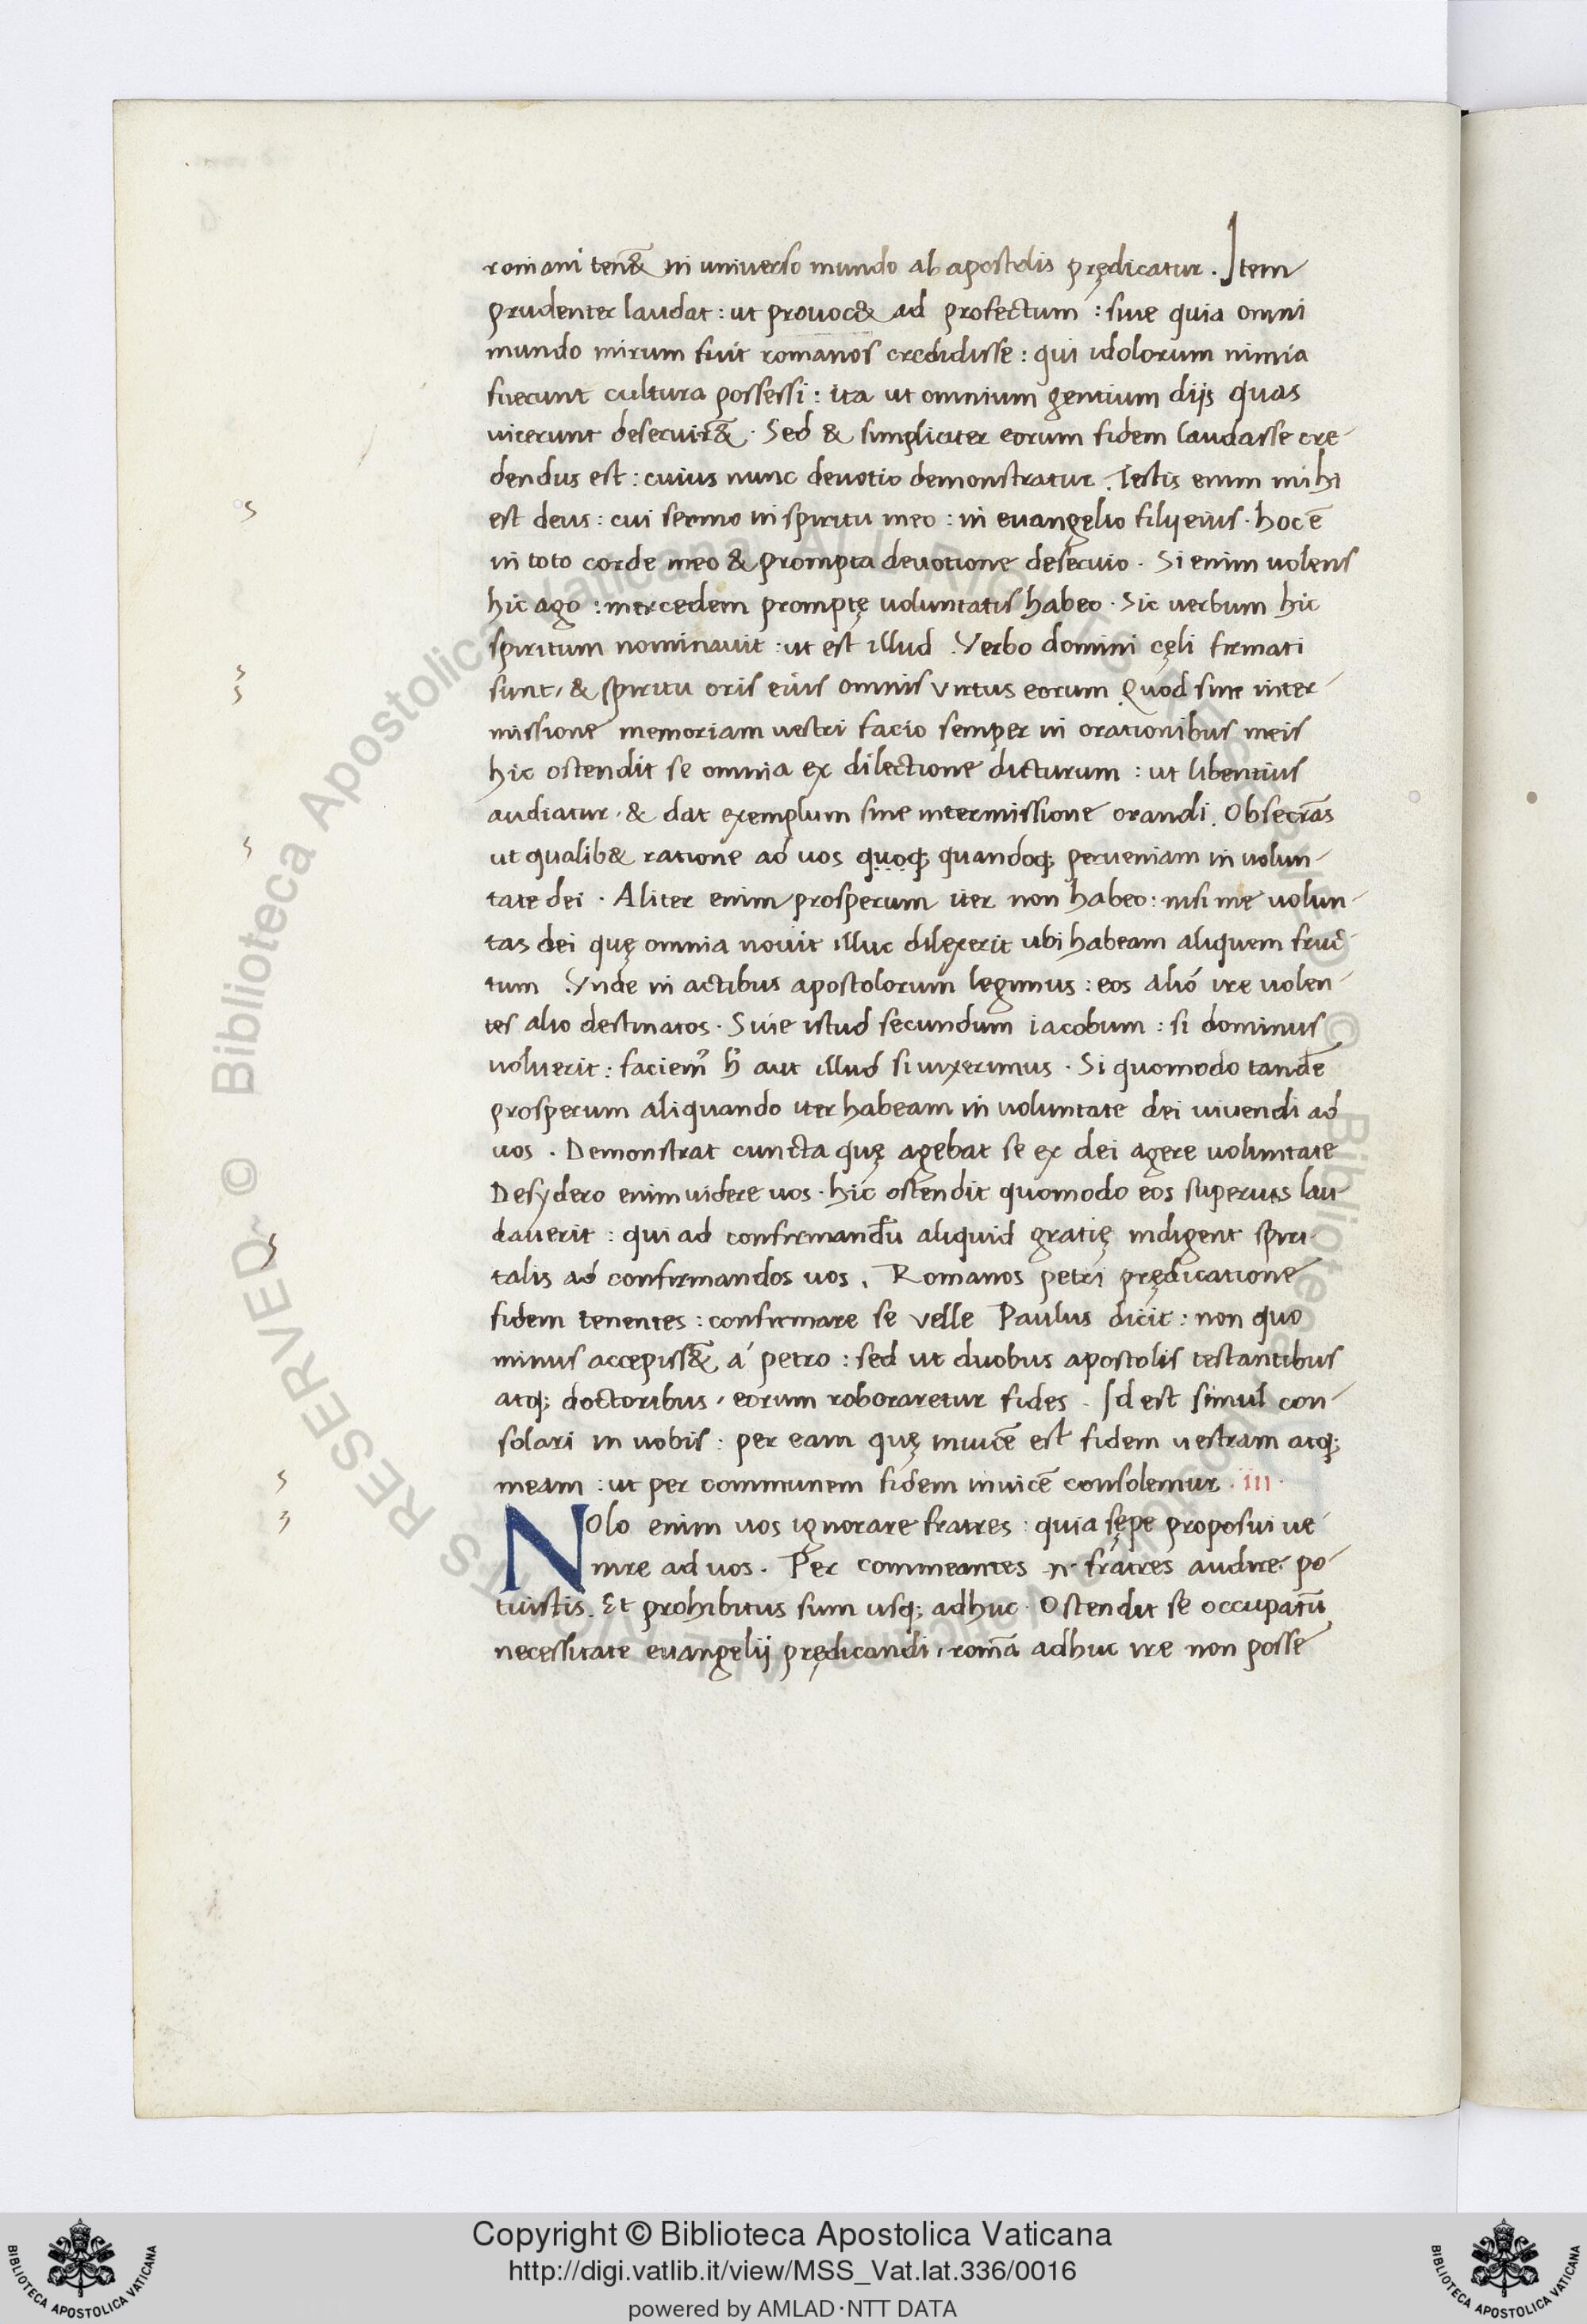 romani ten&̄ in universo mundo ab apostolis prędicatur. Item
prudenter laudat: ut prouoc& ad profectum: siue quia omni
mundo mirum fuit romanos credidisse: qui idolorum nimia
fuerunt cultura possessi: ita ut omnium gentium dijs quas
vicerunt deseruir&̄. Sed & simpliciter eorum fidem laudasse cre-
dendus est: cuius nunc deuotio demonstratur. Testis enim mihi
est deus: cui seruio in spiritu meo: in euangelio filij eius. hoc ē
in toto corde meo & prompta deuotione deseruio. Si enim uolens
hic ago: mercedem promptę uoluntatis habeo. Sic uerbum hic
spiritum nominauit: ut est illud. Verbo domini cęli firmati
sunt, & spiritu oris eius omnis virtus eorum. Quod sine inter-
missione memoriam uestri facio semper in orationibus meis
hic ostendit se omnia ex dilectione dicturum: ut libentius
audiatur, & dat exemplum sine intermissione orandi. Obsecrās
ut qualib& ratione ad uos quoq; quandoq; perueniam in uolun-
tate dei. Aliter enim prosperum iter non habeo: nisi me uolun-
tas dei quę omnia nouit illuc dilexerit ubi habeam aliquem fruc-
tum. Vnde in actibus apostolorum legimus: eos alió ire uolen-
tes alio destinatos. Siue istud secundum iacobum: si dominus
uoluerit: faciem᾽ h̄ aut illud si uixerimus. Si quomodo tandē
prosperum aliquando iter habeam in uoluntate dei uiuendi ad
uos. Demonstrat cuncta quę agebat se ex dei agere uoluntate
Desydero enim uidere uos. hic ostendit quomodo eos superius lau-
dauerit: qui ad confirmandū aliquid gratię indigent spiri-
talis ad confirmandos uos. Romanos petri prędicatione
fidem tenentes: confirmare se velle Paulus dicit: non quo
minus accepiss&̄ á petro: sed ut duobus apostolis testantibus
atq; doctoribus, eorum roboraretur fides. Id est simul con-
solari in uobis: per eam quę inuicē est fidem uestram atq;
meam: ut per communem fidem inuicē consolemur. iii.
Nolo enim uos ignorare fratres: quia sępe proposui ue-
nire ad uos. Per commeantes .n. fratres audire po-
tuistis. Et prohibitus sum usq; adhuc. Ostendit se occupatū
necessitate euangelij prędicandi, romā adhuc ire non posse
Copyright © Biblioteca Apostolica Vaticana
http://digi.vatlib.it/view/MSS_Vat.lat.336/0016
powered by AMLAD·NTT DATA
BIBLIOTECA APOSTOLICA VATICANA
BIBLIOTECA APOSTOLICA VATICANA